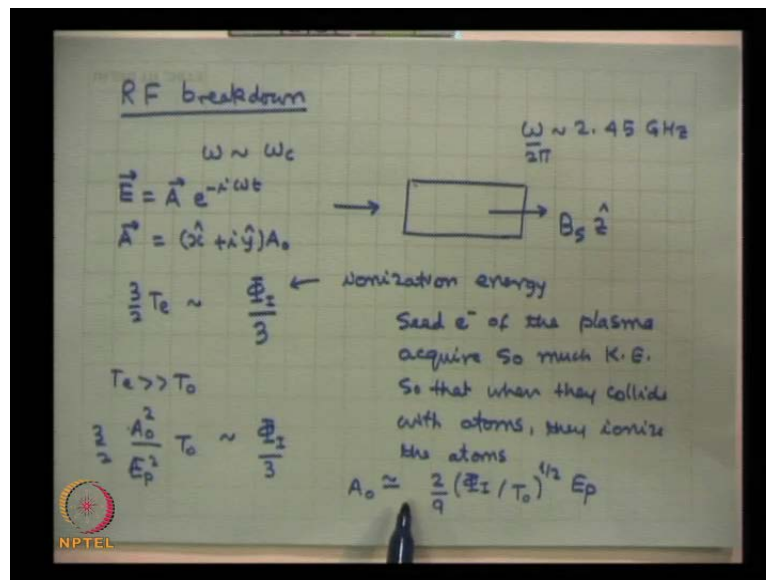 RF breakdown
ω ~ ωc
ω/2π ~ 2.45 GHz
E⃗ = A⃗ e^{-iωt}
→ Bₛ ẑ
A⃗ = (x̂ + iŷ)A₀
3/2 Te ~ Φ_I/3 ← ionization energy
Seed e⁻ of the plasma
acquire so much K.E.
Te >> T₀
So that when they collide
with atoms, they ionize
the atoms
3/2 A₀²/E_p² T₀ ~ Φ_I/3
A₀ ≃ 2/9 (Φ_I/T₀)^{1/2} E_p
NPTEL